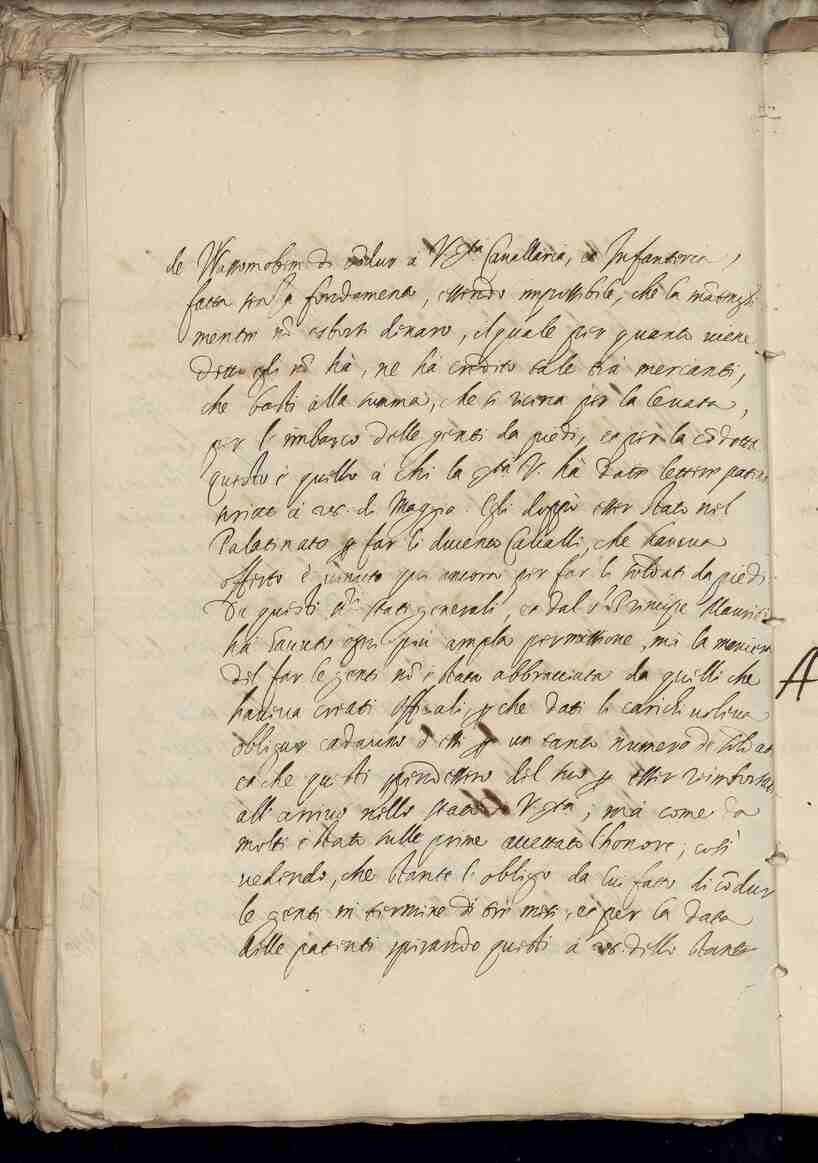 de Wassmohem di cõdur à V. Sertà Cavallaria, et Infanteria,
fatta senza fondamento, essendo impossibile, che la
mentre nõ esborsi denaro, il quale per quanto viene
detto egli nõ hà, ne hà credito tale trà mercanti,
che basti alla summa, che si ricerca per la levata,
per l'imbarco delle genti da piedi, et per la cõdotta
questo è quello à chi la Sertà V. hà dato lettere patenti
à 28. di Maggio. Egli doppò esser stato nel
Palatinato p far li ducento Cavalli, che haveva
offerto è venuto qui ancora per far li soldati da piedi.
Da questi ssri stati generali, et dal sr Principe Mauritio
hà havuto ogni più ampla permissione, mà la maniera
del far le genti nõ è stata abbracciata da quelli che
haveva creati offitiali p che dati li carichi voleva
obligar cadauno d'essi p un tanto numero de soldati
et che questi spendessero del suo p esser rimborsati
all'arrivo nello stato di V. Sertà; mà come da
molti è stato sulle prime accettato l'honore; così
vedendo, che stante l'obligo da lui fatto di cõdur
le genti in termine di trè mesi, et per la data
delle patenti spirando questi à 28. dello stante